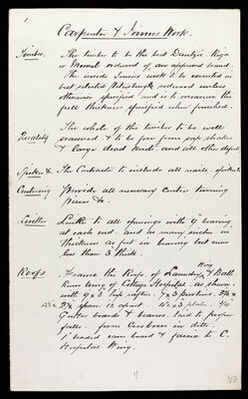 1
Carpenter & Joiners Work.
Timber. The timber to be the best Dantzic Riga
or Memel redwood of an approved brand.
The inside Joiners work to be executed in
best selected Petersburgh redwood unless
otherwise specified and is to measure the
full thickness specified when finished.
Quality The whole of the timber to be well
seasoned & to be free from sap shakes
& large dead knots and all other defects
Spikes &c. The Contractor to include all nails spikes &c
Centering Provide all necessary centres turning
pieces &c
Lintels Lintels to all openings with 9" bearing
at each end and as many inches in
thickness as feet in bearing but none
less than 3" thick.
Roofs. Frame the Roofs of Laundry & Bath
Wing
Room wing of Cottage Hospital as shown
with 9 x 3" hips 7 x 3 purlins. 3½ x
2½ spars 12 apart
Gutter boards & bearers laid to proper
falls.
1" beaded eave board & fascia to C.
Hospital Wing.